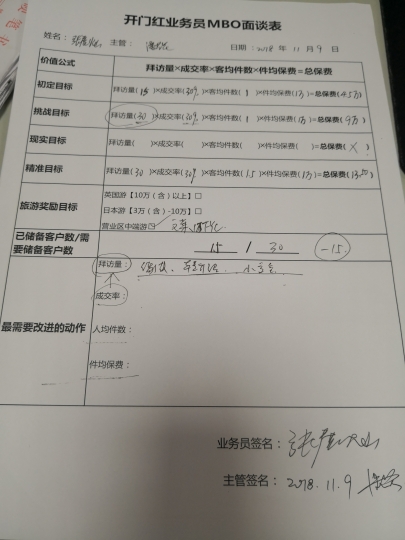 开门红业务员MBO面谈表
姓名： 主管： 日期：2018 年 11 月 9 日
价值公式 拜访量×成交率×客均件数×件均保费=总保费
初定目标 拜访量( 15 )×成交率(30%)×客均件数( 1 )×件均保费(1万)=总保费(4.5万)
挑战目标 拜访量(30)×成交率(30%)×客均件数( 1 )×件均保费(1万)=总保费( 9万 )
现实目标 拜访量( )×成交率( )×客均件数( )×件均保费( )=总保费( × )
精准目标 拜访量(30)×成交率(30%)×客均件数(1.5)×件均保费(1万)=总保费(13.5万)
旅游奖励目标
英国游【10万（含）以上】□
日本游【3万（含）-10万】□
营业区中端游□
已储备客户数/需要储备客户数 15 / 30 -15
最需要改进的动作
拜访量：
成交率：
人均件数：
件均保费：
业务员签名：
主管签名：2018.11.9